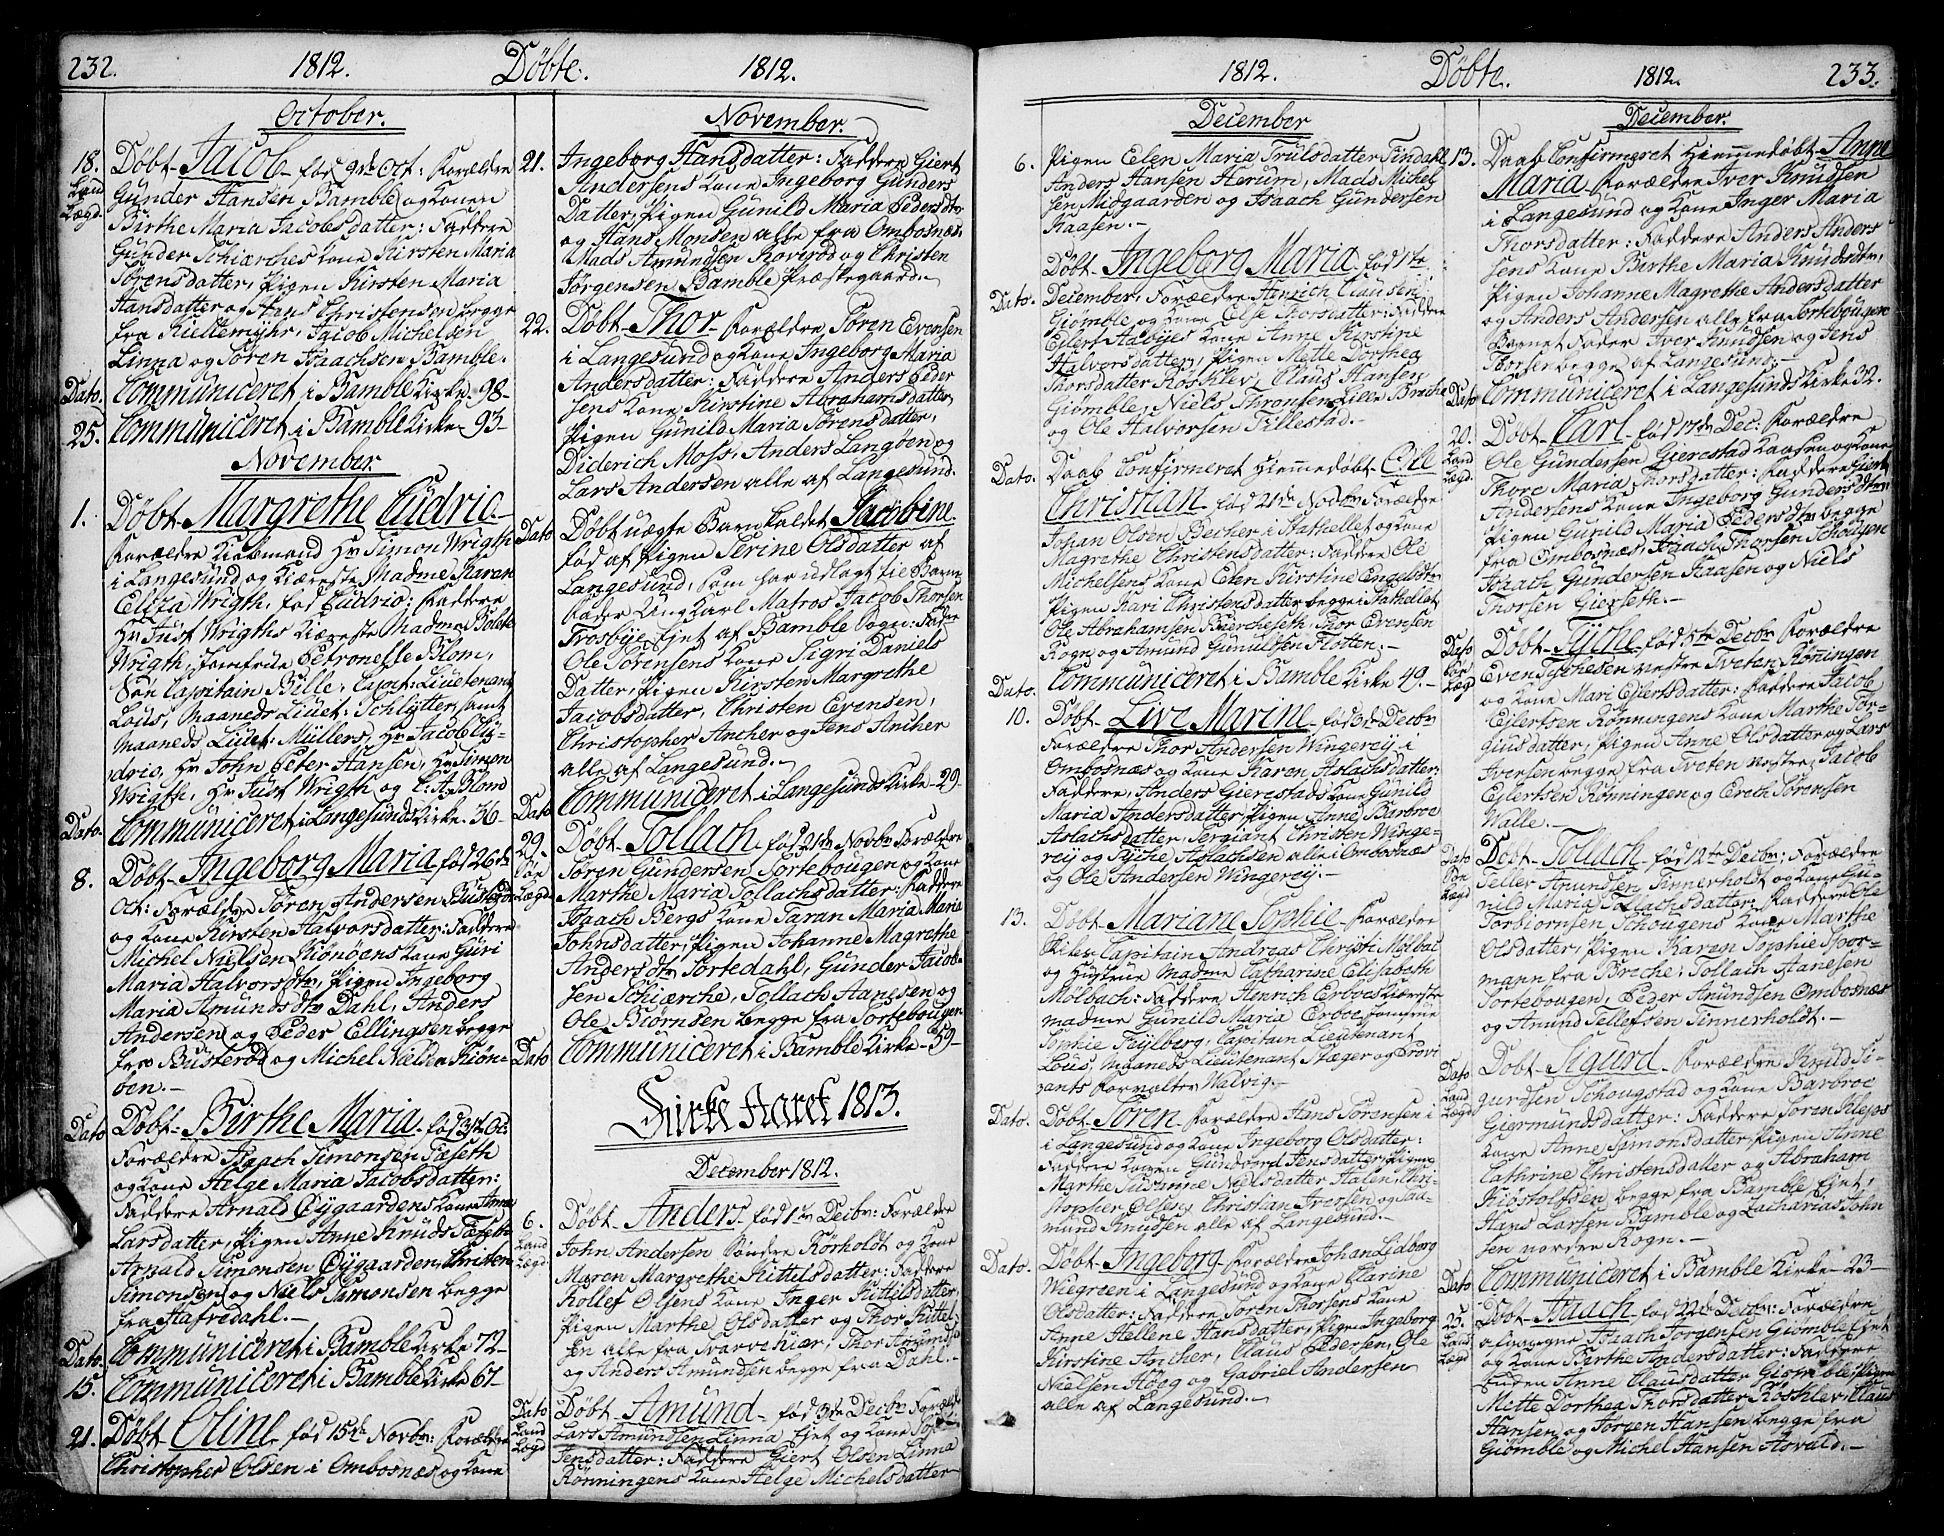 232. 1812. Döbte. 1812.
October.
18. Döbt Jacob fød 9de Oct: Forældre
Land Gunder Hansen Bamble og Konen
Lægd. Birthe Maria Jacobsdatter: Faddere
Gunder Schiærches Kone Kirsten Maria
Sörensdatter, Pigen Kirsten Maria
Hansdatter og Hans Christensen begge
fra Jacob Michelsen
Linna og Sören Isaachsen Bamble.
Dato. Communiceret i Bamble Kirke 98
25. Communiceret i Bamble Kirke 93
November.
1. Döbt Margrethe Cudrio
Forældre Kiøbmand Hr Simon Wrigth
i Langesund og Kiæreste Madme Karen
Eliza Wrigth, fød Cudrio: Faddere
Hr Just Wrigths Kiæreste Madme Bolete
Wrigth, Jomfrue Petronelle Blom,
Søn Capitain Bille, Capit: Liuetenant
Lous, Maaneds Liuet: Schlytter, samt
Maaneds Liuet: Müllers, Hr Jacob Cu-
drio, Hr John Peter Hansen, Hr Simon
Wrigth, Hr Just Wrigth og Blom
Dato. Communiceret i Langesunds Kirke 36
8. Döbt Ingeborg Maria fød 26de
Oct: Forældre Sören Andersen Busterød
og Kone Kirsten Halvorsdatter: Faddere
Michel Nielsen Kiönöens Kone Guri
Maria Halvorsdtr, Pigen Ingeborg
Maria Amundsdtr Dahl, Anders
Andersen og Peder Ellingsen begge
fra Busterød og Michel Nielsen Kiön-
öen.
Dato Döbt Birthe Maria fød 31te Oct:
Forældre Isaach Simonsen Sæseth
og Kone Helge Maria Jacobsdatter:
Faddere Arnald Öygaardens Kone Anne
Larsdatter, Pigen Anne Knuds
Arnald Simonsen Öygaarden, Christen
Simonsen og Niels Simonsen begge
fra Hafredahl.
Dato. Communiceret i Bamble Kirke 72
15. Communiceret i Bamble Kirke 67
21. Döbt Oline fød 15de Novbr: Forældre
Christopher Olsen i Ombosnæs og Kone
November.
21. Ingeborg Hansdatter: Faddere Giert
Andersens Kone Ingeborg Gunders
Datter, Pigen Gunild Maria Pedersdtr
og Hans Monsen alle fra Ombosnæs.
Mads Amundsen Rovigød og Christen
Jörgensen Bamble Præstegaarden
22. Döbt Thor Forældre Sören Evensen
i Langesund og Kone Ingeborg Maria
Andersdatter: Faddere Anders Peder
sens Kone Kirstine Abrahamsdatter,
Pigen Gunild Maria Sörensdatter,
Diderich Moss, Anders Langben og
Lars Andersen alle af Langesund.
Dato Döbt uægte Barn kaldet Jacobine
fød af Pigen Serine Olsdatter af
Langesund, som har udlagt til Barne
Fader Ung Karl Matros Jacob Thorsen
Trosbye Ejet af Bamble Sogn: Faddre
Ole Sörensens Kone Sigri Daniels
Datter, Pigen Kirsten Margrethe
Jacobsdatter, Christen Evensen,
Christopher Ancher og Jens Ancher
alle af Langesund.
Dato Communiceret i Langesunds Kirke 29
29. Döbt Tollach fød 21de Novbr Forældre
Sør Sören Gundersen Sortebougen og Kone
Lægd Marthe Maria Tollachsdatter: Faddere
Isaach Bergs Kone Taran Maria Maria
Johnsdatter, Pigen Johanne Magrethe
Andersdtr Sortedahl, Gunder Jacob-
sen Schiærche, Tollach Hansen og
Ole Biørnsen begge fra Sortebougen
Dato Communiceret i Bamble Kirke 59
Kirke Aaret 1813.
December 1812.
6. Döbt Anders fød 1te Decbr: Forældre
Land John Andersen Söndre Rörholdt og Kone
Lægd. Maren Margrethe Kittelsdatter: Faddere
Rollef Olsens Kone Inger Kittelsdatter,
Pigen Marthe Olsdatter og Thor Kittel
sen alle fra Svarvekiær, Thor
og Anders Amundsen begge fra Dahl.
Dato Döbt Amund fød 3de Decbr Forældre
Land Lars Amundsen Linna Ejet og Kone
Lægd Jensdatter: Faddere Giert Olsen Linna
Rönningens Kone Helge Michelsdatter
1812. Döbte. 1812. 233.
December
6. Pigen Elen Maria Trulsdatter Findahl
Anders Hansen Herum, Mads Michel
sen Midgaarden og Isaach Gundersen
Kaasen.
Döbt Ingeborg Maria fød 1te
Dato. December, Forældre Henrich Clausen
Giømble og Kone Else Thorsdatter: Faddere
Eilert Aabyes Kone Anne Kirstine
Halvorsdatter, Pigen Mette Dorthea
Thorsdatter Rösklev, Claus Hansen
Giømble, Niels Thronsen Lille Breche
og Ole Halvorsen Tillestad.
Dato. Daab Confirmeret Hiemmedøbt
Christian fød 21de Novbr Forældre
Johan Olsen Becher i Stathellet og Kone
Magrethe Christensdatter: Faddere Ole
Michelsens Kone Elen Kirstine Engelsdtr
Pigen Kari Christensdatter begge i Stathellet
Ole Abrahamsen Thor Evensen
Rogn og Amund Gunulfsen Flotten.
Dato. Communiceret i Bamble Kirke 49.
10. Döbt Live Marine fød 6te Decbr
Forældre Thor Andersen Wingerøy i
Ombosnæs og Kone Karen Aslachsdatter:
Faddere, Anders Gierestads Kone Gunild
Maria Andersdatter, Pigen Anne Barbroe
Aslachsdatter, Sergiant Christen Winge-
røy og Tyche Aslachsen alle i Ombosnæs
og Ole Andersen Wingerøy.
13. Döbt Mariane Sophie Forældre
Capitain Andreas Christi Mølbac
og Hustrue Madme Catharine Elisabeth
Mölbach: Faddere Henrich Erboes Kiæreste
Madme Gunild Maria Erboe Jomfrue
Sophie Feylberg, Capitain Lieutenant
Lous, Maaneds Lieutenant Stæger og Provi
ants Forvalter Walvig.
Dato. Döbt Sören Forældre Hans Sörensen i
i Langesund og Kone Ingeborg Olsdatter:
Faddere Konen Gundvord Jensdatter, Pigen
Marthe Susanne Nielsdatter Halen, Chri-
stopher Olsen, Christian Iversen og Saa-
mund Knudsen alle af Langesund.
Dato. Döbt Ingeborg Forældre Johan Lidborg
Wiegreen i Langesund og Kone Clarine
Olsdatter: Faddere Sören Thorsens Kone
Anne Hellene Hansdatter, Pigen Ingeborg
Kirstine Ancher, Claus Pedersen, Ole
Nielsen Höeg og Gabriel Andersen
alle af Langesund.
December.
13. Daab Confirmeret Hiemmedøbt Anne
Maria Forældre Iver Knudsen
i Langesund og Kone Inger Maria
Thorsdatter: Faddere Anders Anders
sens Kone Birthe Maria Knudsdtr,
Pigen Johanne Magrethe Andersdatter
og Anders Andersen alle fra Sortebougen
Barnet Fader Iver Knudsen og Jens
Thorsen begge af Langesund.
Dato Communiceret i Langesunds Kirke 32.
20. Döbt Carl fød 17de Dec: Forældre
Land Ole Gundersen Gierestad Kaasen og Kone
Lægd. Thore Maria Thorsdatter: Faddere Giert
Andersens Kone Ingeborg Gundersdtr,
Pigen Gunild Maria Pedersdtr begge
fra Ombosnæs, Isaach Thorsen Schougen
Isaach Gundersen Kaasen og Niels
Thorsen Gierseth.
Dato Döbt Tyche fød 5te Decbr Forældre
Sør Even Tychesen vestre Tveten Röningen
Lægd og Kone Mari Eilertsdatter: Faddere Jacob
Eilertsen Rönningens Kone Marthe Tor-
giusdatter, Pigen Anne Olsdatter og Lars
Iversen begge fra Tveten vestre, Jacob
Eilertsen Rönningen og Erich Sörensen
Walle.
Dato Döbt Tollach fød 12te Decbr: Forældre
Sør Tellef Amundsen Tinnerholdt og Kone Gu-
Lægd nild Maria Tollachsdatter: Faddere Ole
Torbiornsen Schougens Kone Marthe
Olsdatter, Pigen Karen Sophie Spor-
mann fra Breche, Tollach Hansen
Sortebougen, Peder Amundsen Ombosnæs
og Amund Tellefsen Tinnerholdt.
Dato Döbt Sigurd Forældre Knud Si-
Land gurdsen Schougstad og Kone Barbroe
Lægd Giermundsdatter: Faddere Sören Kleps
Kone Anne Simonsdatter, Pigen Anne
Cathrine Christensdatter og Abraham
Kiøstolfsen begge fra Bamble Ejet,
Hans Larsen Bamble og Zacharias John
sen nordre Rogn.
Dato Communiceret i Bamble Kirke 23
25. Döbt Isaach fød 22de Decbr: Forældre
Land Isaach Jørgensen Giømble Ejet
Lægd og Kone Birthe Andersdatter: Faddere
Anne Clausdatter Giømble, Pigen
Mette Dorthea Thorsdatter Röskklev, Claus
Hansen og Jörgen Hansen begge fra
Giømble og Michel Hansen Aavald.